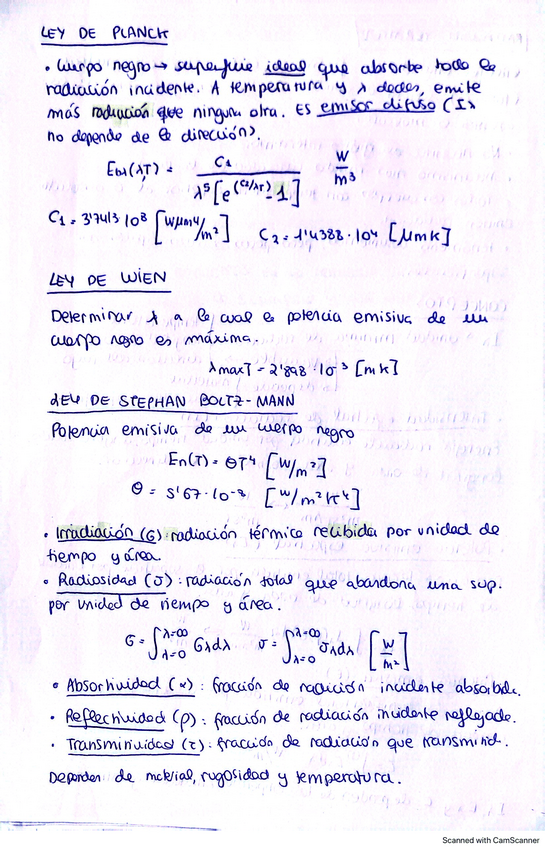 LEY DE PLANCK
• Cuerpo negro → superficie ideal que absorbe toda la
radiación incidente. A temperatura y λ dadas, emite
más radiación que ninguna otra. Es emisor difuso (Iλ
no depende de la dirección).
Ebλ(λT) = C1 / λ⁵[e^(C2/λT) - 1] W/m³
C1 = 3'7413·10⁸ [Wμm⁴/m²] C2 = 1'4388·10⁴ [μmK]
LEY DE WIEN
Determinar λ a la cual la potencia emisiva de un
cuerpo negro es máxima.
λmaxT = 2'898·10⁻³ [mK]
LEY DE STEPHAN BOLTZ-MANN
Potencia emisiva de un cuerpo negro
En(T) = ΘT⁴ [W/m²]
Θ = 5'67·10⁻⁸ [W/m²K⁴]
• Irradiación (G): radiación térmica recibida por unidad de
tiempo y área.
• Radiosidad (J): radiación total que abandona una sup.
por unidad de tiempo y área.
G = ∫λ=0^λ=∞ Gλdλ J = ∫λ=0^λ=∞ Jλdλ [W/m²]
• Absortividad (α): fracción de radiación incidente absorbida.
• Reflectividad (ρ): fracción de radiación incidente reflejada.
• Transmitividad (τ): fracción de radiación que transmite.
Dependen de material, rugosidad y temperatura.
Scanned with CamScanner